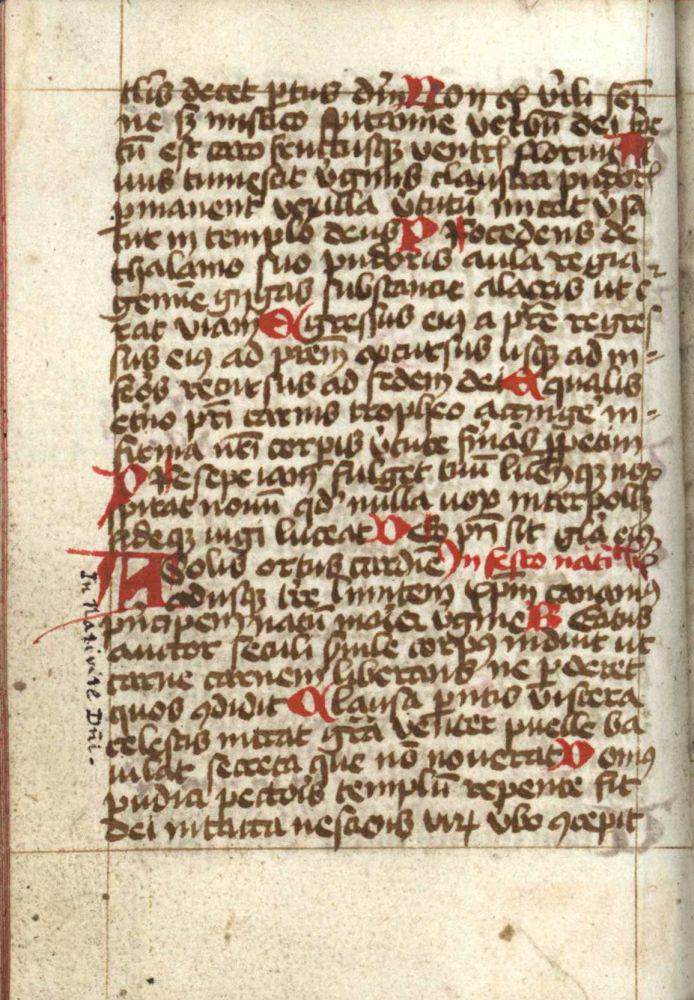 tl̄is decet ꝑtus dm̄ Non ex v̓ili sem̄
ne sꝫ mistico spiramīe verbū dei fac
tū est caro fructusqꝫ ventrꝭ floruit Al
uus tumescit v̓ginis claustra pudorꝭ
ꝑmanent vexilla v̓tutū micāt v̓sa
tur in templo deus Procedens de
thalamo suo pudoris aula regia
gemīe gygas substancie alacris ut c
rat viam Egressus eiꝰ a pr̄e regres
sus eiꝰ ad prēm excursus usqꝫ ad in-
feros recursus ad sedem dei Equalis
et̓no pr̄i carnis tropheo accinge in-
firma nr̄i corꝑis v̓tute firmās ꝑpetim
Presepe iam fulget tuū lumēqꝫ nox
spirat nouū qd̓ nulla nox interpollꝫ
fideqꝫ iugi luceat Deo pr̄i sit gl̄a eiꝰ
A Solis ortus cardīe In festo nati
In Nativite Dn̄i.
adusqꝫ t̓re limitem xp̄m canamꝰ
pn̓cipem natū maria v̓gine Beatus
auctor seculi s̓uile corpꝰ induit ut
carne carnem liberans ne ꝑderet
quos ꝯdidit Clausa pn̄tis viscera
celestis intrat gr̄a venter puelle ba
iulat secreta que nō nouerat Domꝰ
pudici pectoris templū repente fit
dei intacta nesciens virꝝ v̓bo ꝯcepit